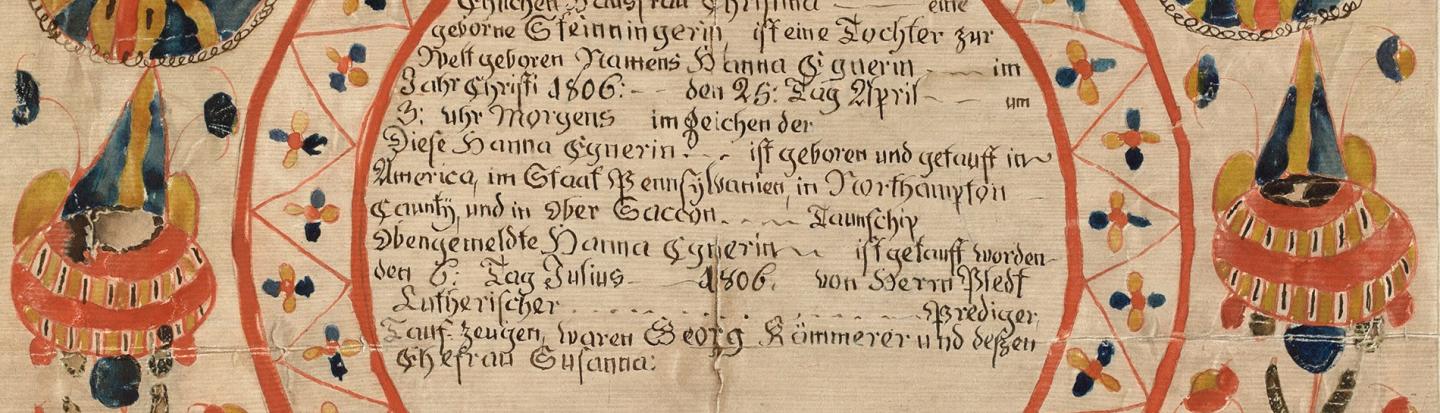 Ehlichen Hausfrau Christina eine
geborne Steinningerin ist eine Tochter zur
Welt geboren Namens Hanna Egnerin im
Jahr Christi 1806: den 25: Tag April um
3: uhr Morgens im Zeichen der
Diese Hanna Egnerin: ist geboren und getauft in
America, im Staat Pennsylvanien, in Northampton
Caunty, und in Ober Saccon Taunschip
Obengemeldte Hanna Egnerin ist getauft worden
den 6: Tag Julius 1806. von Herrn
Lutherischer Prediger,
Tauf-Zeugen, waren Georg Kömmerer und deßen
Ehefrau Susanna: